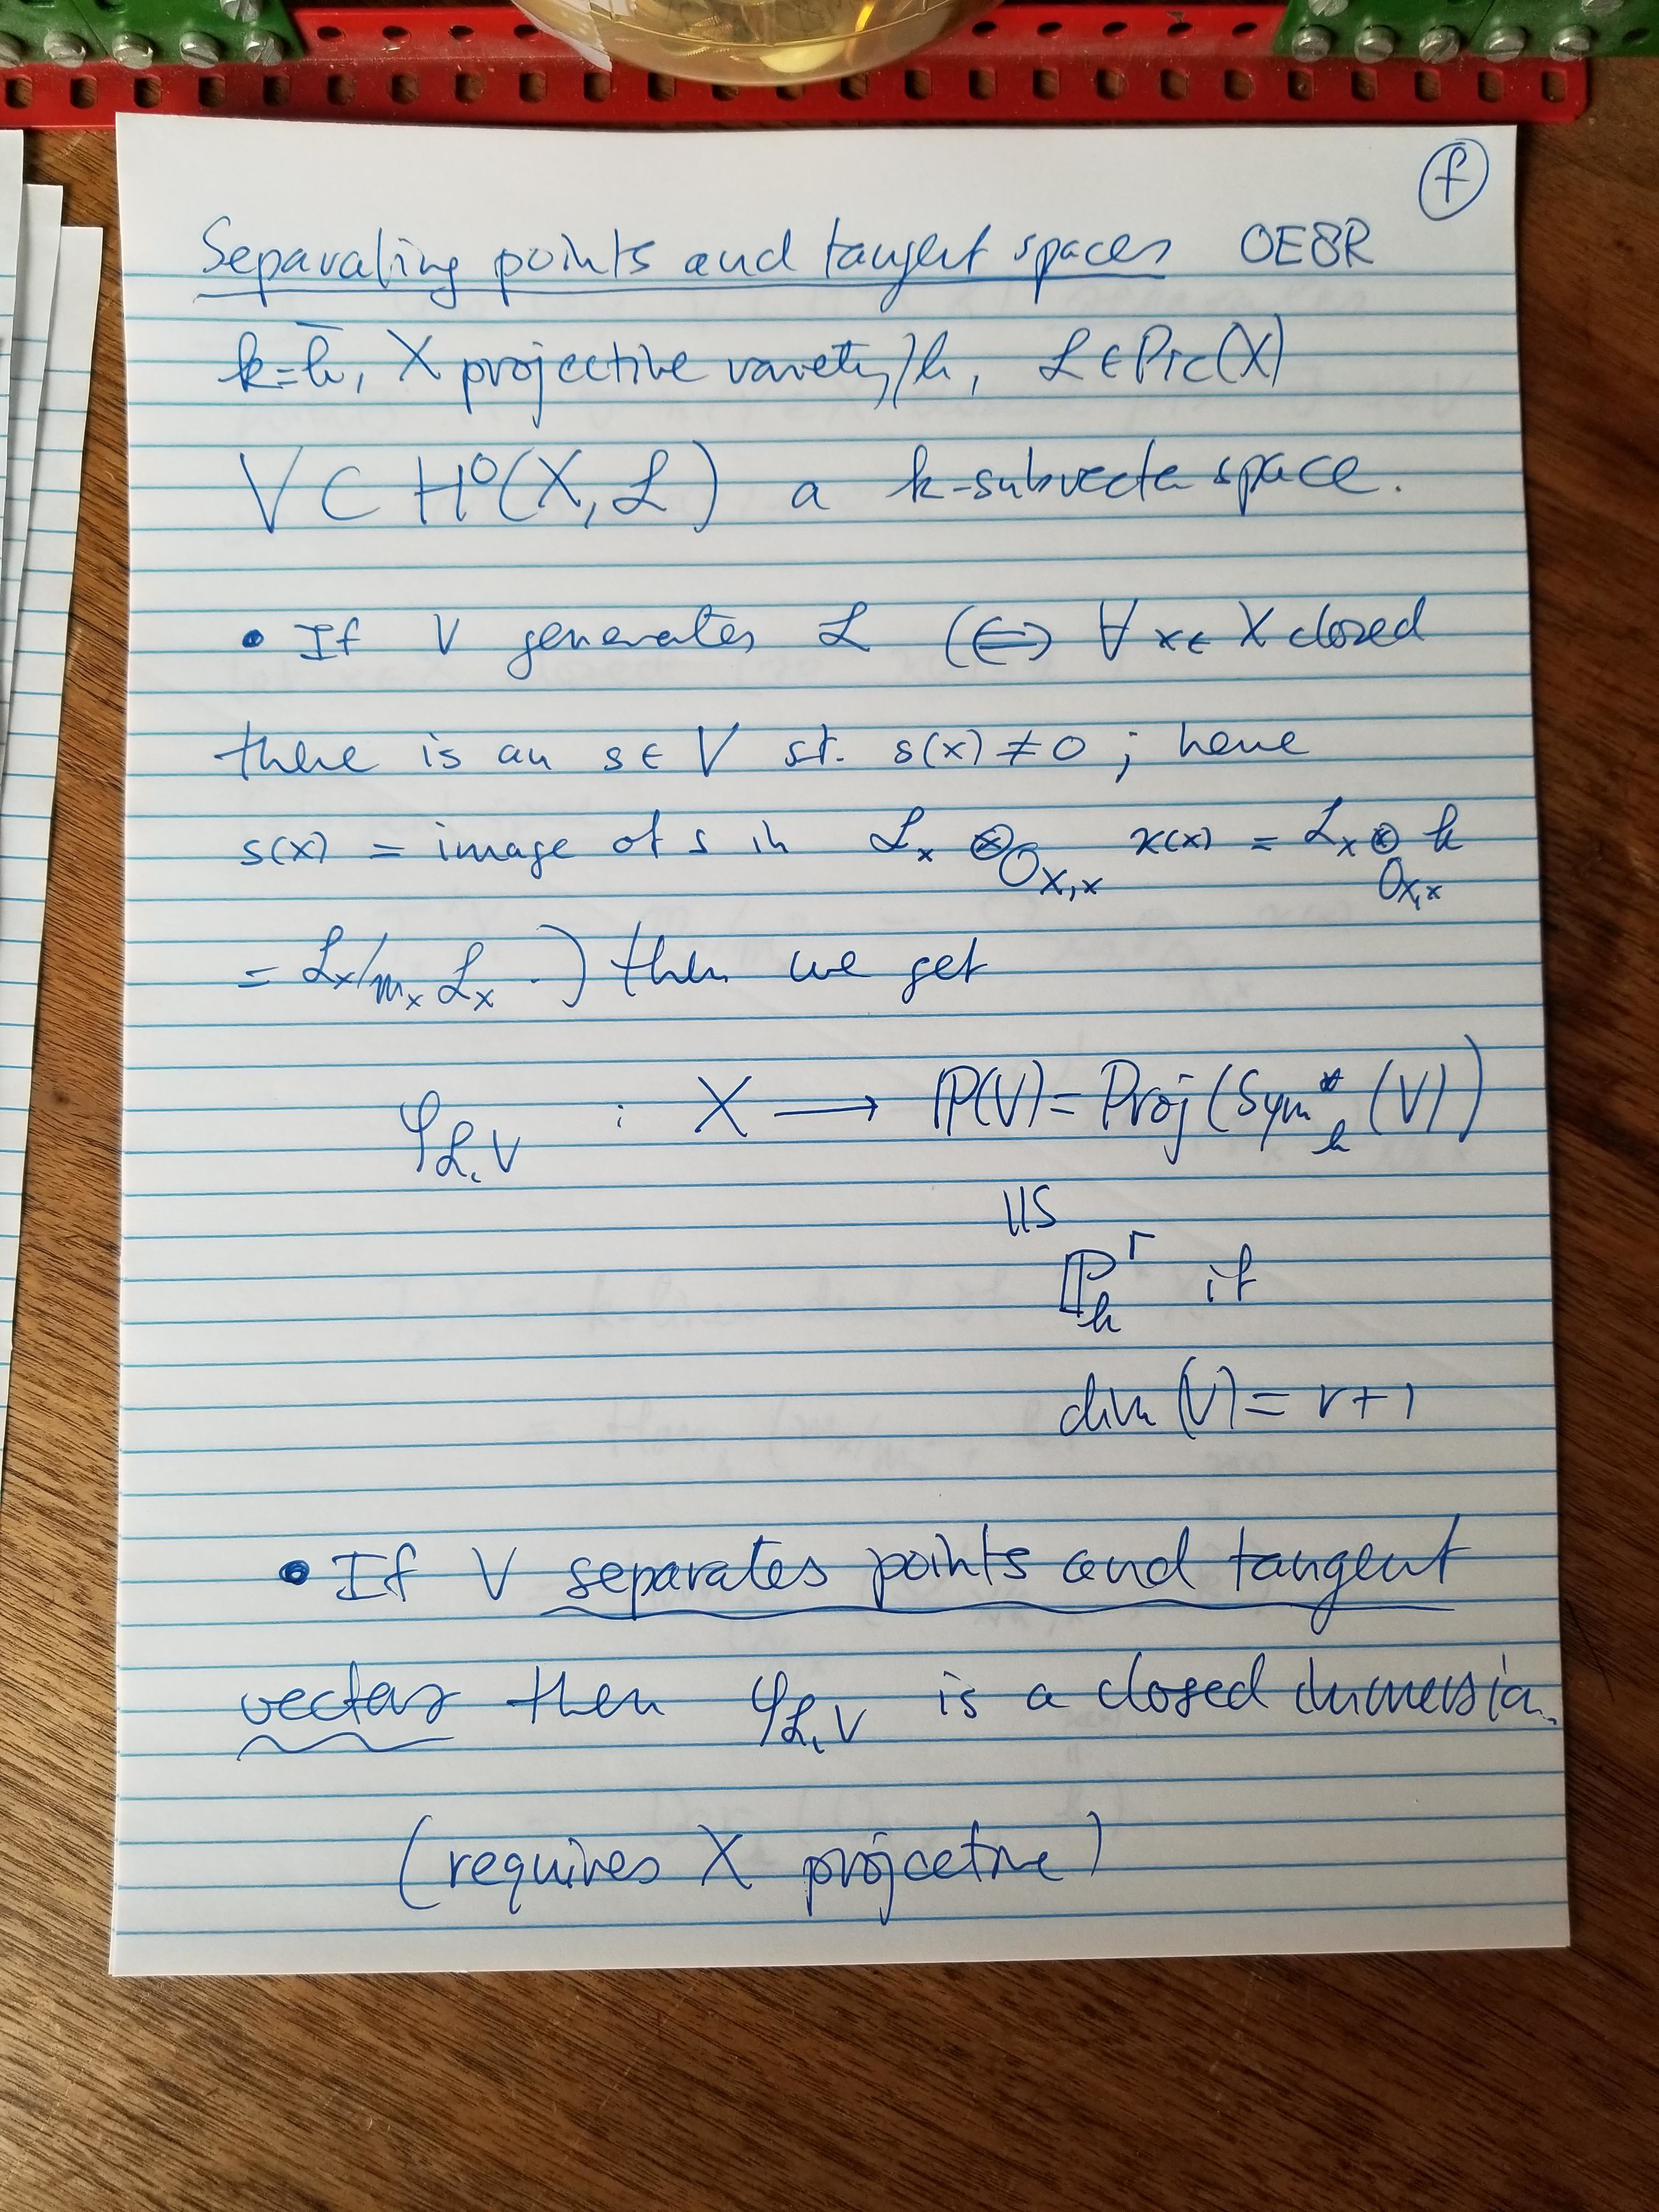 f
Separating points and tangent spaces 0E8R
k=k̄, X projective variety/k, ℒ ∈ Pic(X)
V ⊂ H⁰(X, ℒ) a k-subvector space.
• If V generates ℒ (⇔ ∀ x ∈ X closed
there is an s ∈ V st. s(x) ≠ 0 ; here
s(x) = image of s in ℒ_x ⊗_{O_{X,x}} κ(x) = ℒ_x ⊗_{O_{X,x}} k
= ℒ_x/m_x ℒ_x .) then we get
φ_{ℒ,V} : X ⟶ ℙ(V) = Proj(Sym*_k (V))
≅
ℙ^r_k if
dim(V) = r+1
• If V separates points and tangent
vectors then φ_{ℒ,V} is a closed immersion.
(requires X projective)